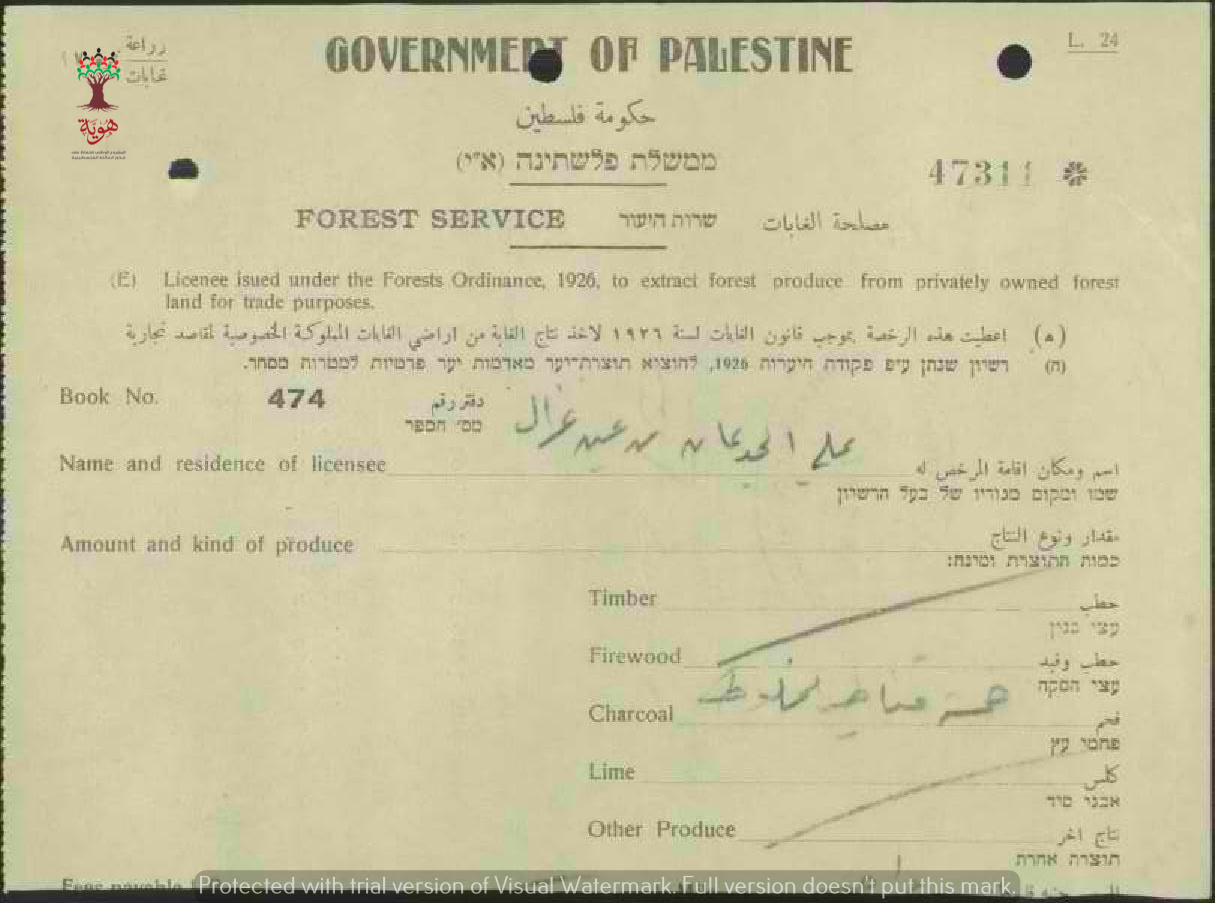 زراعة
غابات
GOVERNMENT OF PALESTINE
L. 24
هوية
حكومة فلسطين
ממשלת פלשתינה (א״י)
47311 *
FOREST SERVICE שרות היעור مصلحة الغابات
(E) Licenee isued under the Forests Ordinance, 1926, to extract forest produce from privately owned forest
land for trade purposes.
(ه) اعطيت هذه الرخصة بموجب قانون الغابات لسنة ١٩٢٦ لاخذ نتاج الغابة من اراضي الغابات المملوكة الخصوصية لمقاصد تجارية
(ה) רשיון שנתן ע״פ פקודת היערות 1926, להוציא תוצרת־יער מאדמות יער פרטיות למטרות מסחר.
Book No. 474 دفتر رقم
מס׳ הספר
من عين غزال
Name and residence of licensee اسم ومكان اقامة المرخص له
שמו ומקום מגוריו של בעל הרשיון
Amount and kind of produce مقدار ونوع النتاج
כמות התוצרת ומינה:
Timber حطب
עצי בנין
Firewood حطب وقيد
עצי הסקה
خمسة قناطير
Charcoal فحم
פחמי עץ
Lime كلس
אבני סיד
Other Produce نتاج اخر
תוצרת אחרת
Fees payable
Protected with trial version of Visual Watermark. Full version doesn't put this mark.